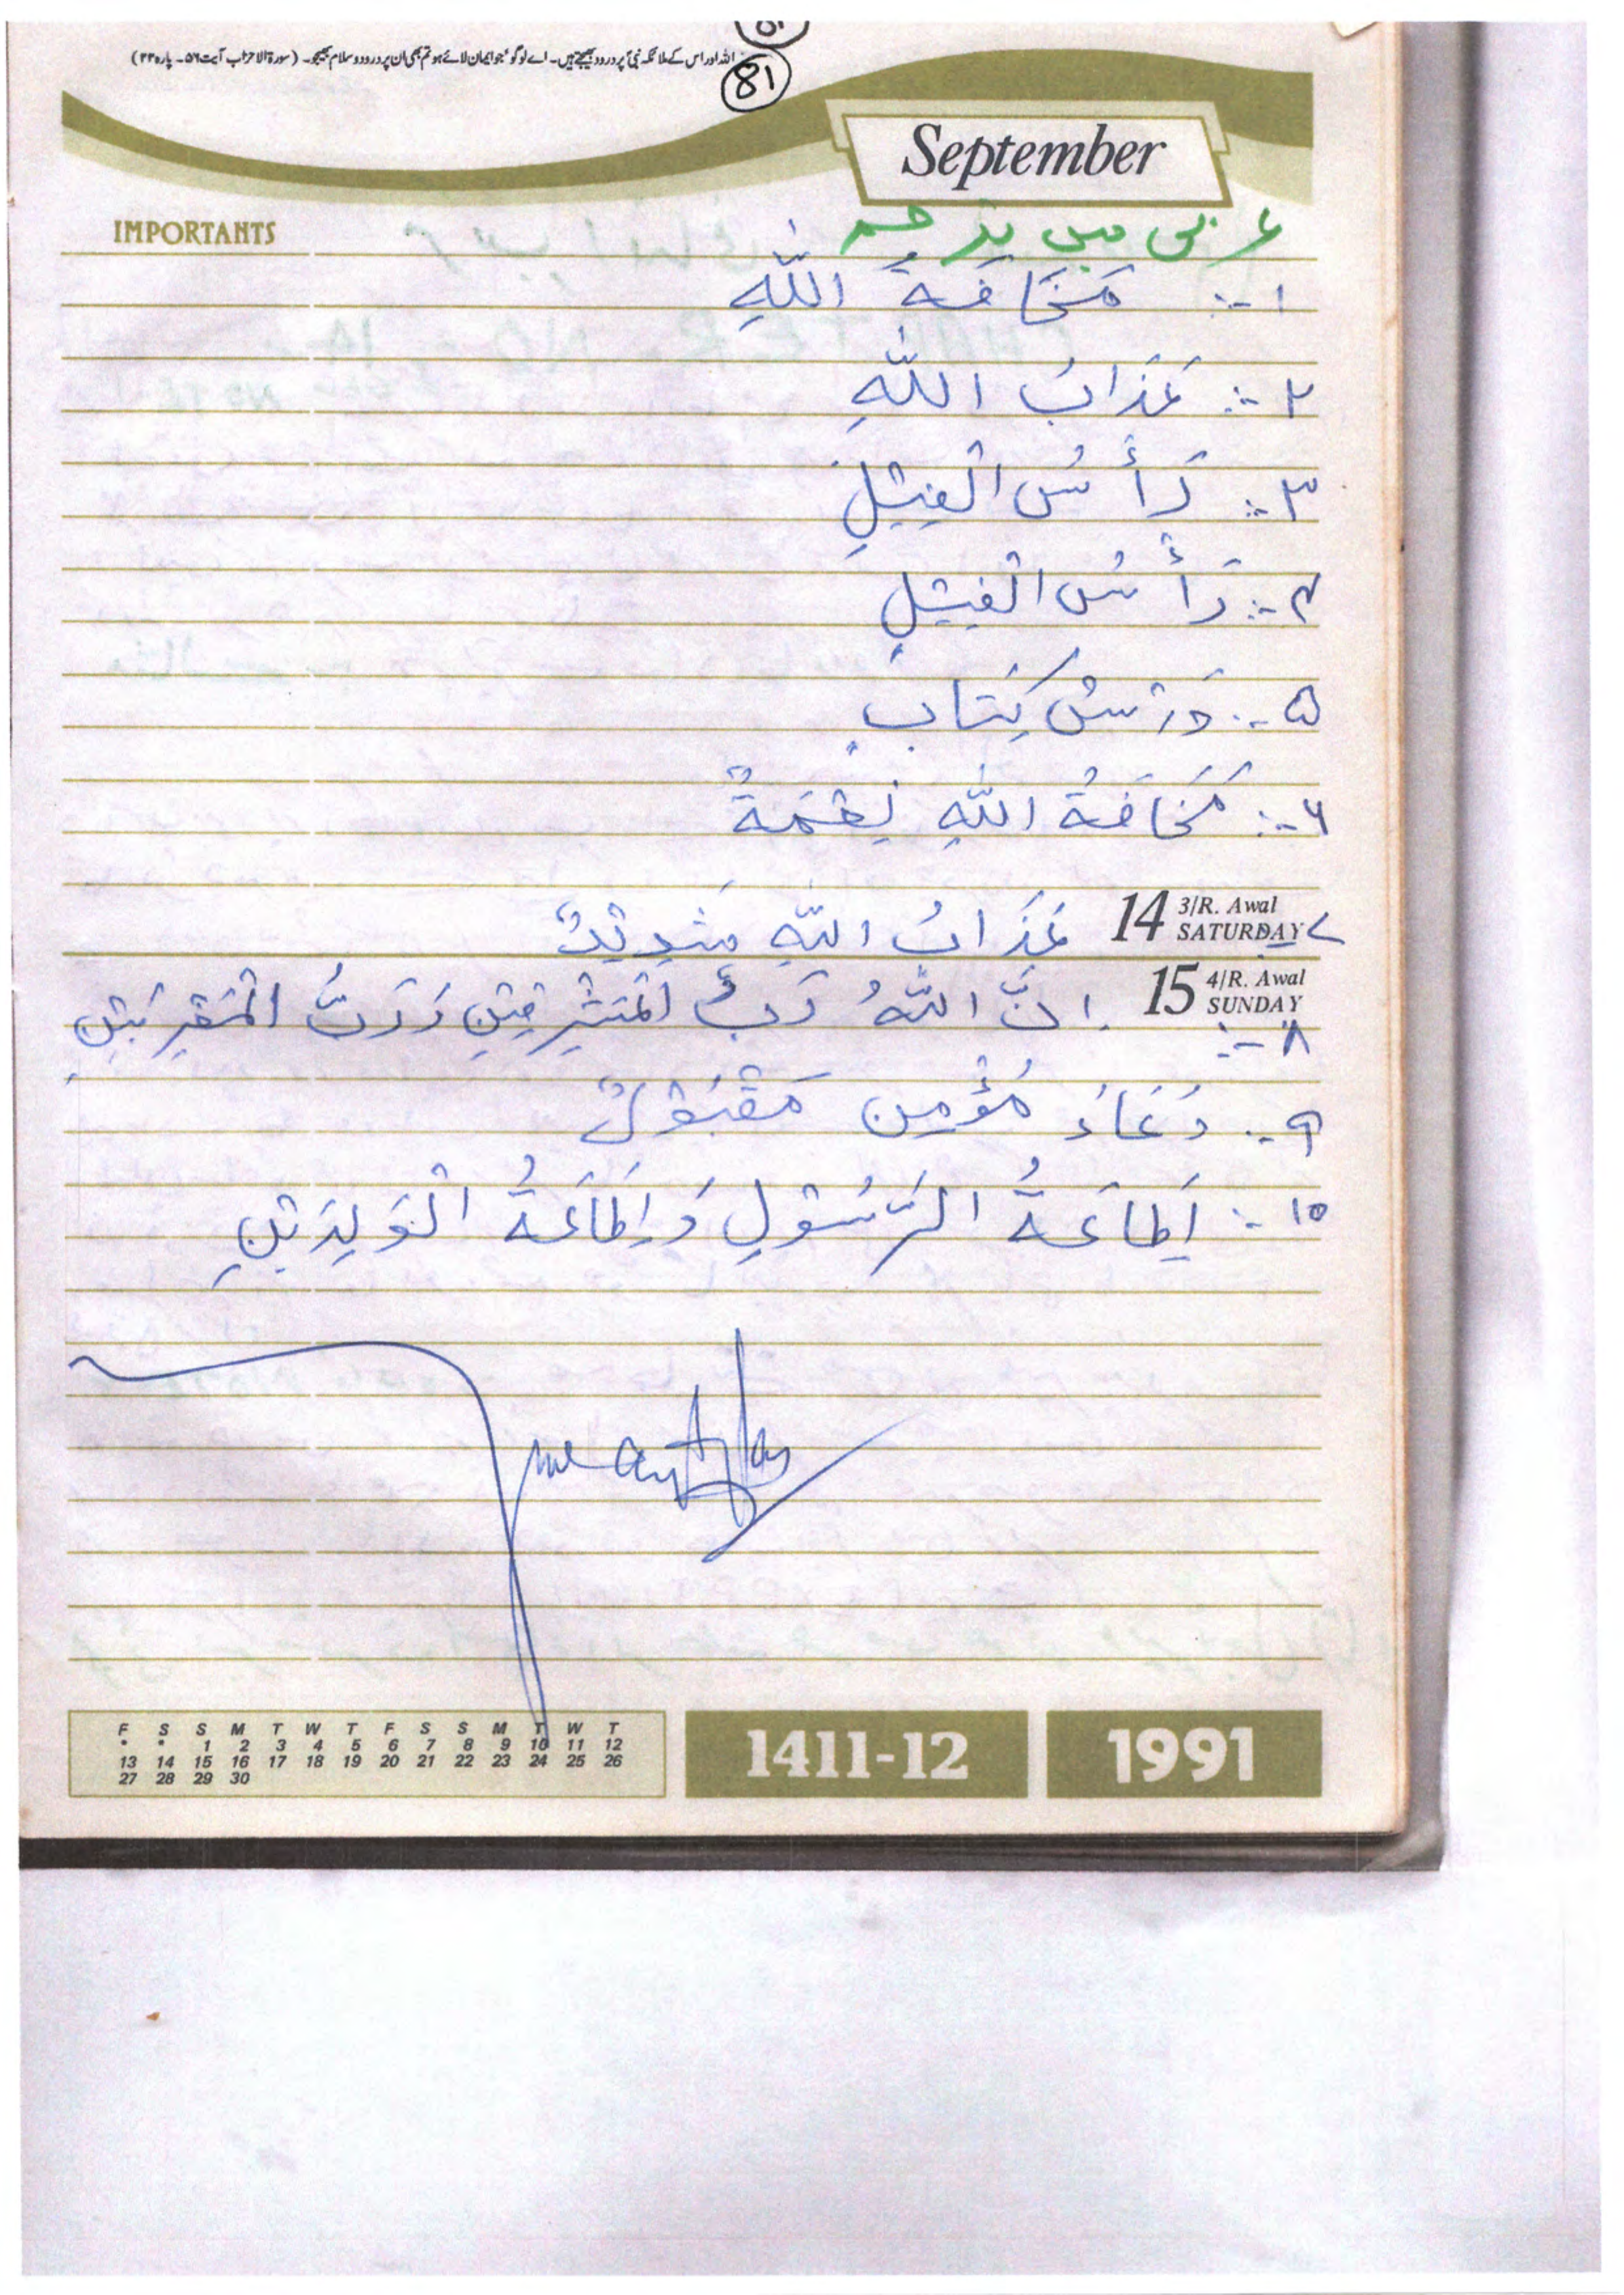 اللہ اور اس کے ملائکہ نبیؐ پر درود بھیجتے ہیں۔ اے لوگو جو ایمان لائے ہو تم بھی ان پر درود و سلام بھیجو۔ (سورۃ الاحزاب آیت ۵۶۔ پارہ ۲۲)
81
September
IMPORTANTS
عربی میں ترجمہ
۱:- مَخَافَةُ اللّٰهِ
۲:- عَذَابُ اللّٰهِ
۳:- رَأْسُ الْفِيْلِ
۴:- رَأْسُ الْفِيْلِ
۵:- دَرْسُ كِتَابٍ
۶:- مَخَافَةُ اللّٰهِ نِعْمَةٌ
14 3/R. Awal SATURDAY
۷:- عَذَابُ اللّٰهِ شَدِيْدٌ
15 4/R. Awal SUNDAY
۸:- اِنَّ اللّٰهُ رَبُّ الْمَشْرِقَيْنِ وَرَبُّ الْمَغْرِبَيْنِ
۹:- دُعَاءُ مُؤْمِنٍ مَقْبُوْلٌ
۱۰:- اِطَاعَةُ الرَّسُوْلِ وَ اِطَاعَةُ الْوَلِدَيْنِ
F S S M T W T F S S M T W T
* * 1 2 3 4 5 6 7 8 9 10 11 12
13 14 15 16 17 18 19 20 21 22 23 24 25 26
27 28 29 30
1411-12
1991